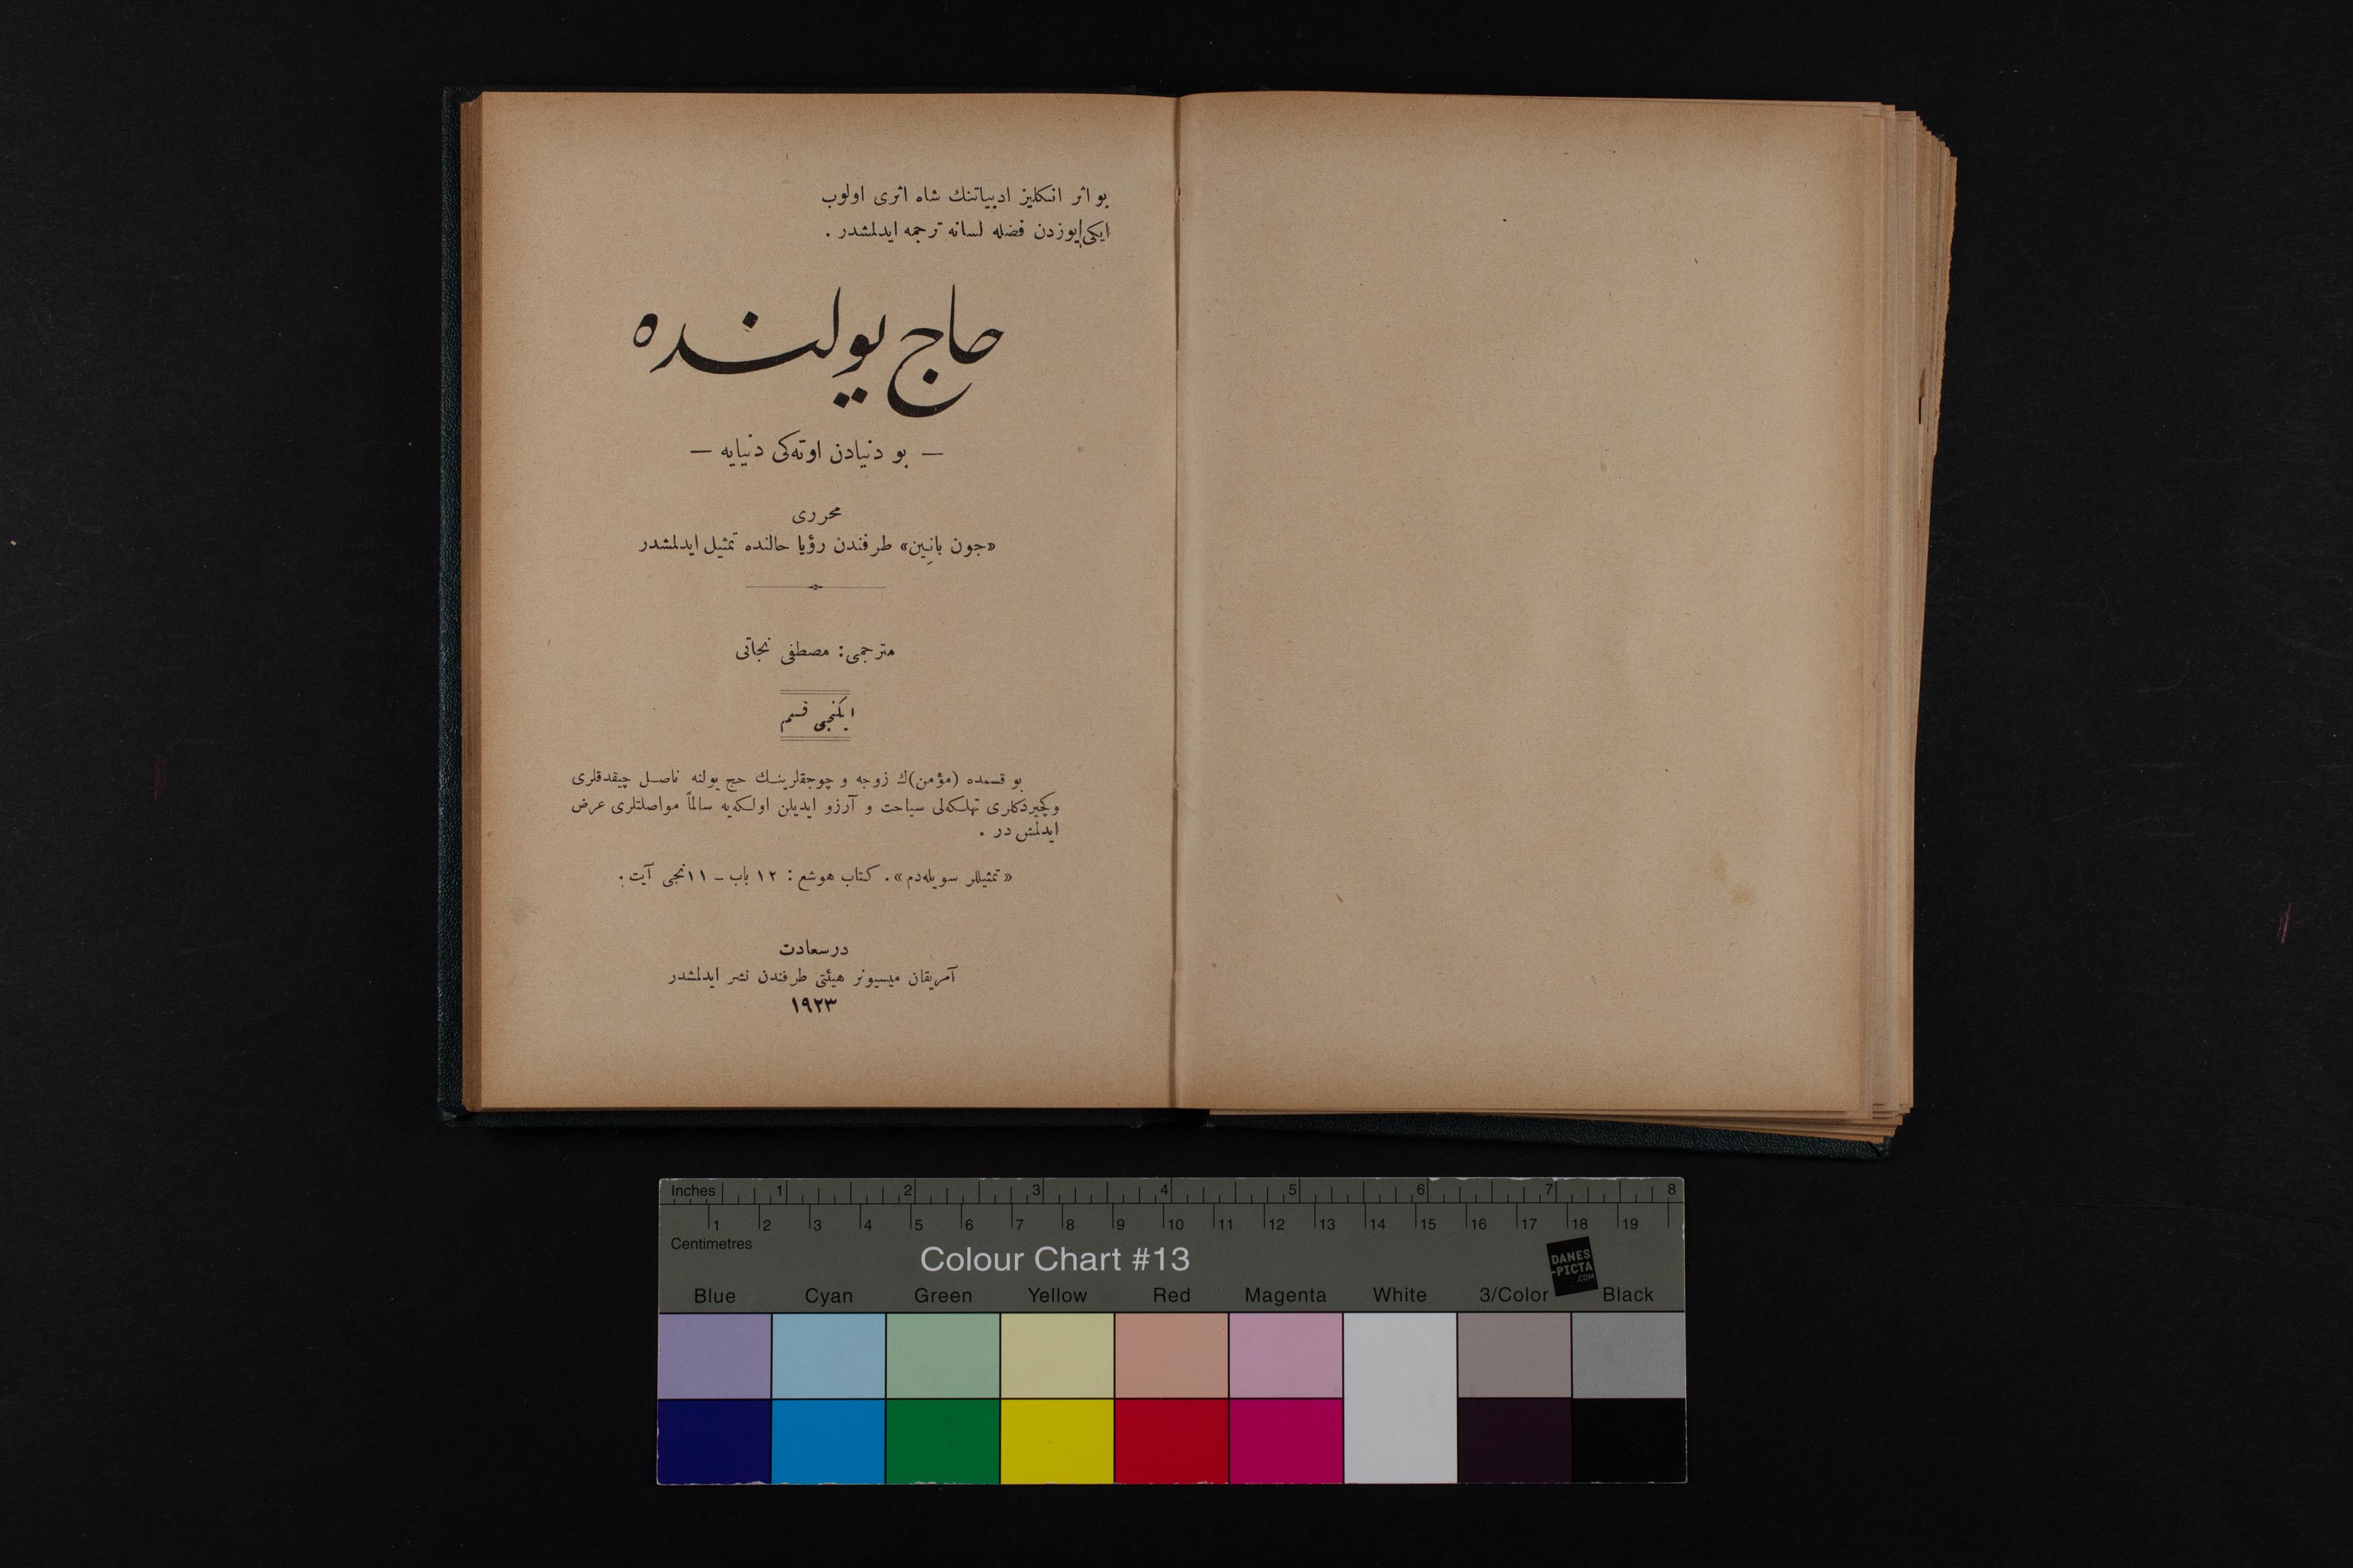 بو اثر انكليز ادبياتنك شاه اثرى اولوب
ايكى يوزدن فضله لسانه ترجمه ايدلمشدر .
حاج يولنده
— بو دنيادن اوته‌كى دنيايه —
محررى
«جون بانِين» طرفندن رؤيا حالنده تمثيل ايدلمشدر
مترجمى: مصطفى نجاتى
ايكنجى قسم
بو قسمده (مؤمن)ك زوجه و چوجقلرينك حج يولنه ناصل چيقدقلرى
وكچيردكلرى تهلكه‌لى سياحت و آرزو ايديلن اولكه‌يه سالماً مواصلتلرى عرض
ايدلمش در .
«تمثيللر سويله‌دم» . كتاب هوشع : ١٢ باب ـ ١١نجى آيت .
درسعادت
آمريقان ميسيونر هيئتى طرفندن نشر ايدلمشدر
١٩٢٣
Inches 1 2 3 4 5 6 7 8
1 2 3 4 5 6 7 8 9 10 11 12 13 14 15 16 17 18 19
Centimetres
Colour Chart #13
DANES
-PICTA
.COM
Blue Cyan Green Yellow Red Magenta White 3/Color Black